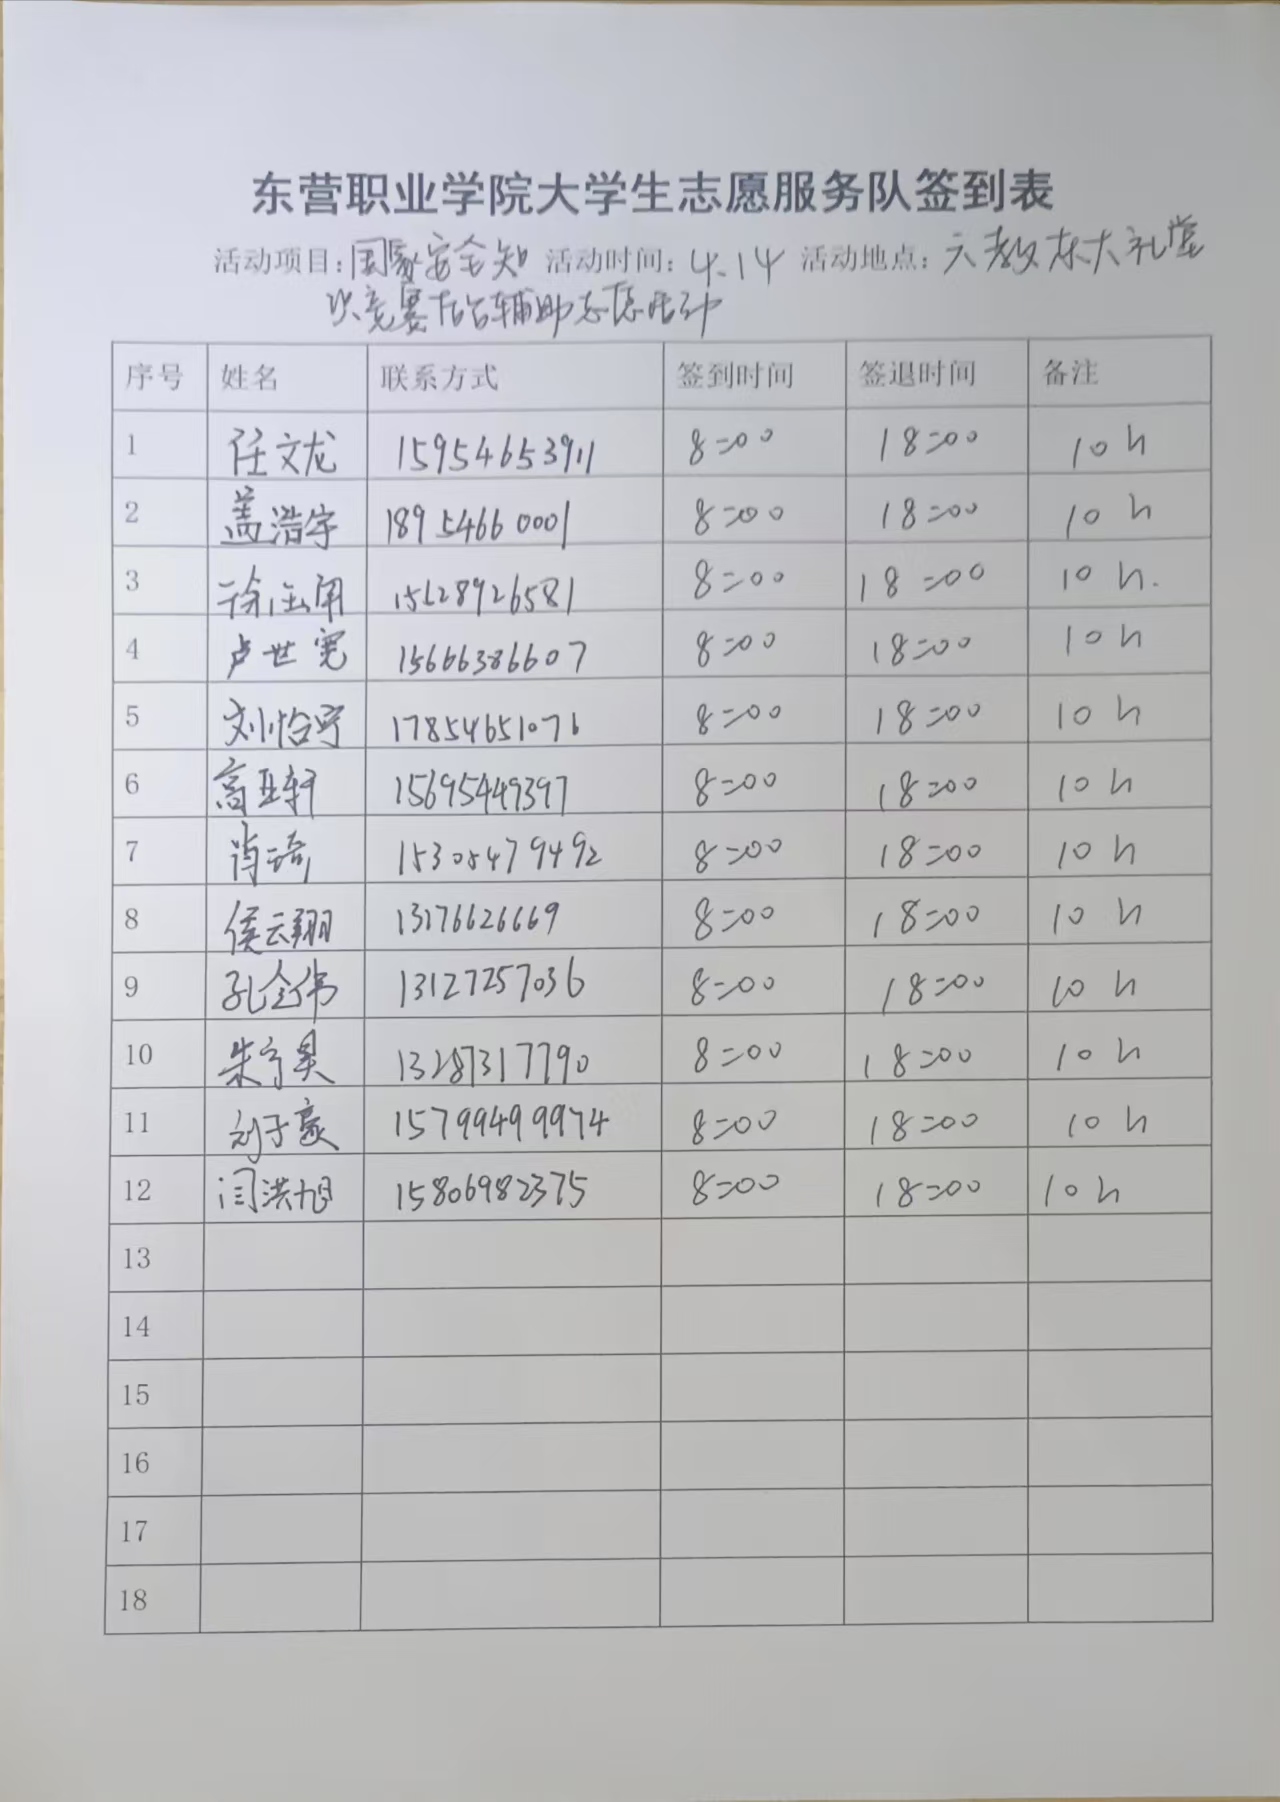 东营职业学院大学生志愿服务队签到表
活动项目：国家安全知 活动时间：4.14 活动地点：六教东大礼堂
识竞赛后台辅助志愿活动
序号 姓名 联系方式 签到时间 签退时间 备注
1 任文龙 15954653911 8:00 18:00 10 h
2 盖浩宇 18954660001 8:00 18:00 10 h
3 15628926581 8:00 18:00 10 h.
4 卢世宪 15666386607 8:00 18:00 10 h
5 刘怡宁 17854651076 8:00 18:00 10 h
6 高亚轩 15695449397 8:00 18:00 10 h
7 肖琦 15305479492 8:00 18:00 10 h
8 侯云翔 13176626669 8:00 18:00 10 h
9 孔金伟 13127257036 8:00 18:00 10 h
10 朱宁昊 13287317790 8:00 18:00 10 h
11 刘子豪 15799499974 8:00 18:00 10 h
12 闫洪旭 15806982375 8:00 18:00 10 h
13
14
15
16
17
18